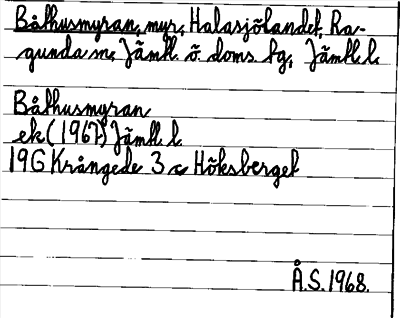 Båthusmyran, myr, Halasjölandet, Ra-
gunda sn, Jämtl. ö. doms. tg, Jämtl. l.
Båthusmyran
ek (1967) Jämtl l
19G Krångede 3 c Höksberget
Å.S. 1968.